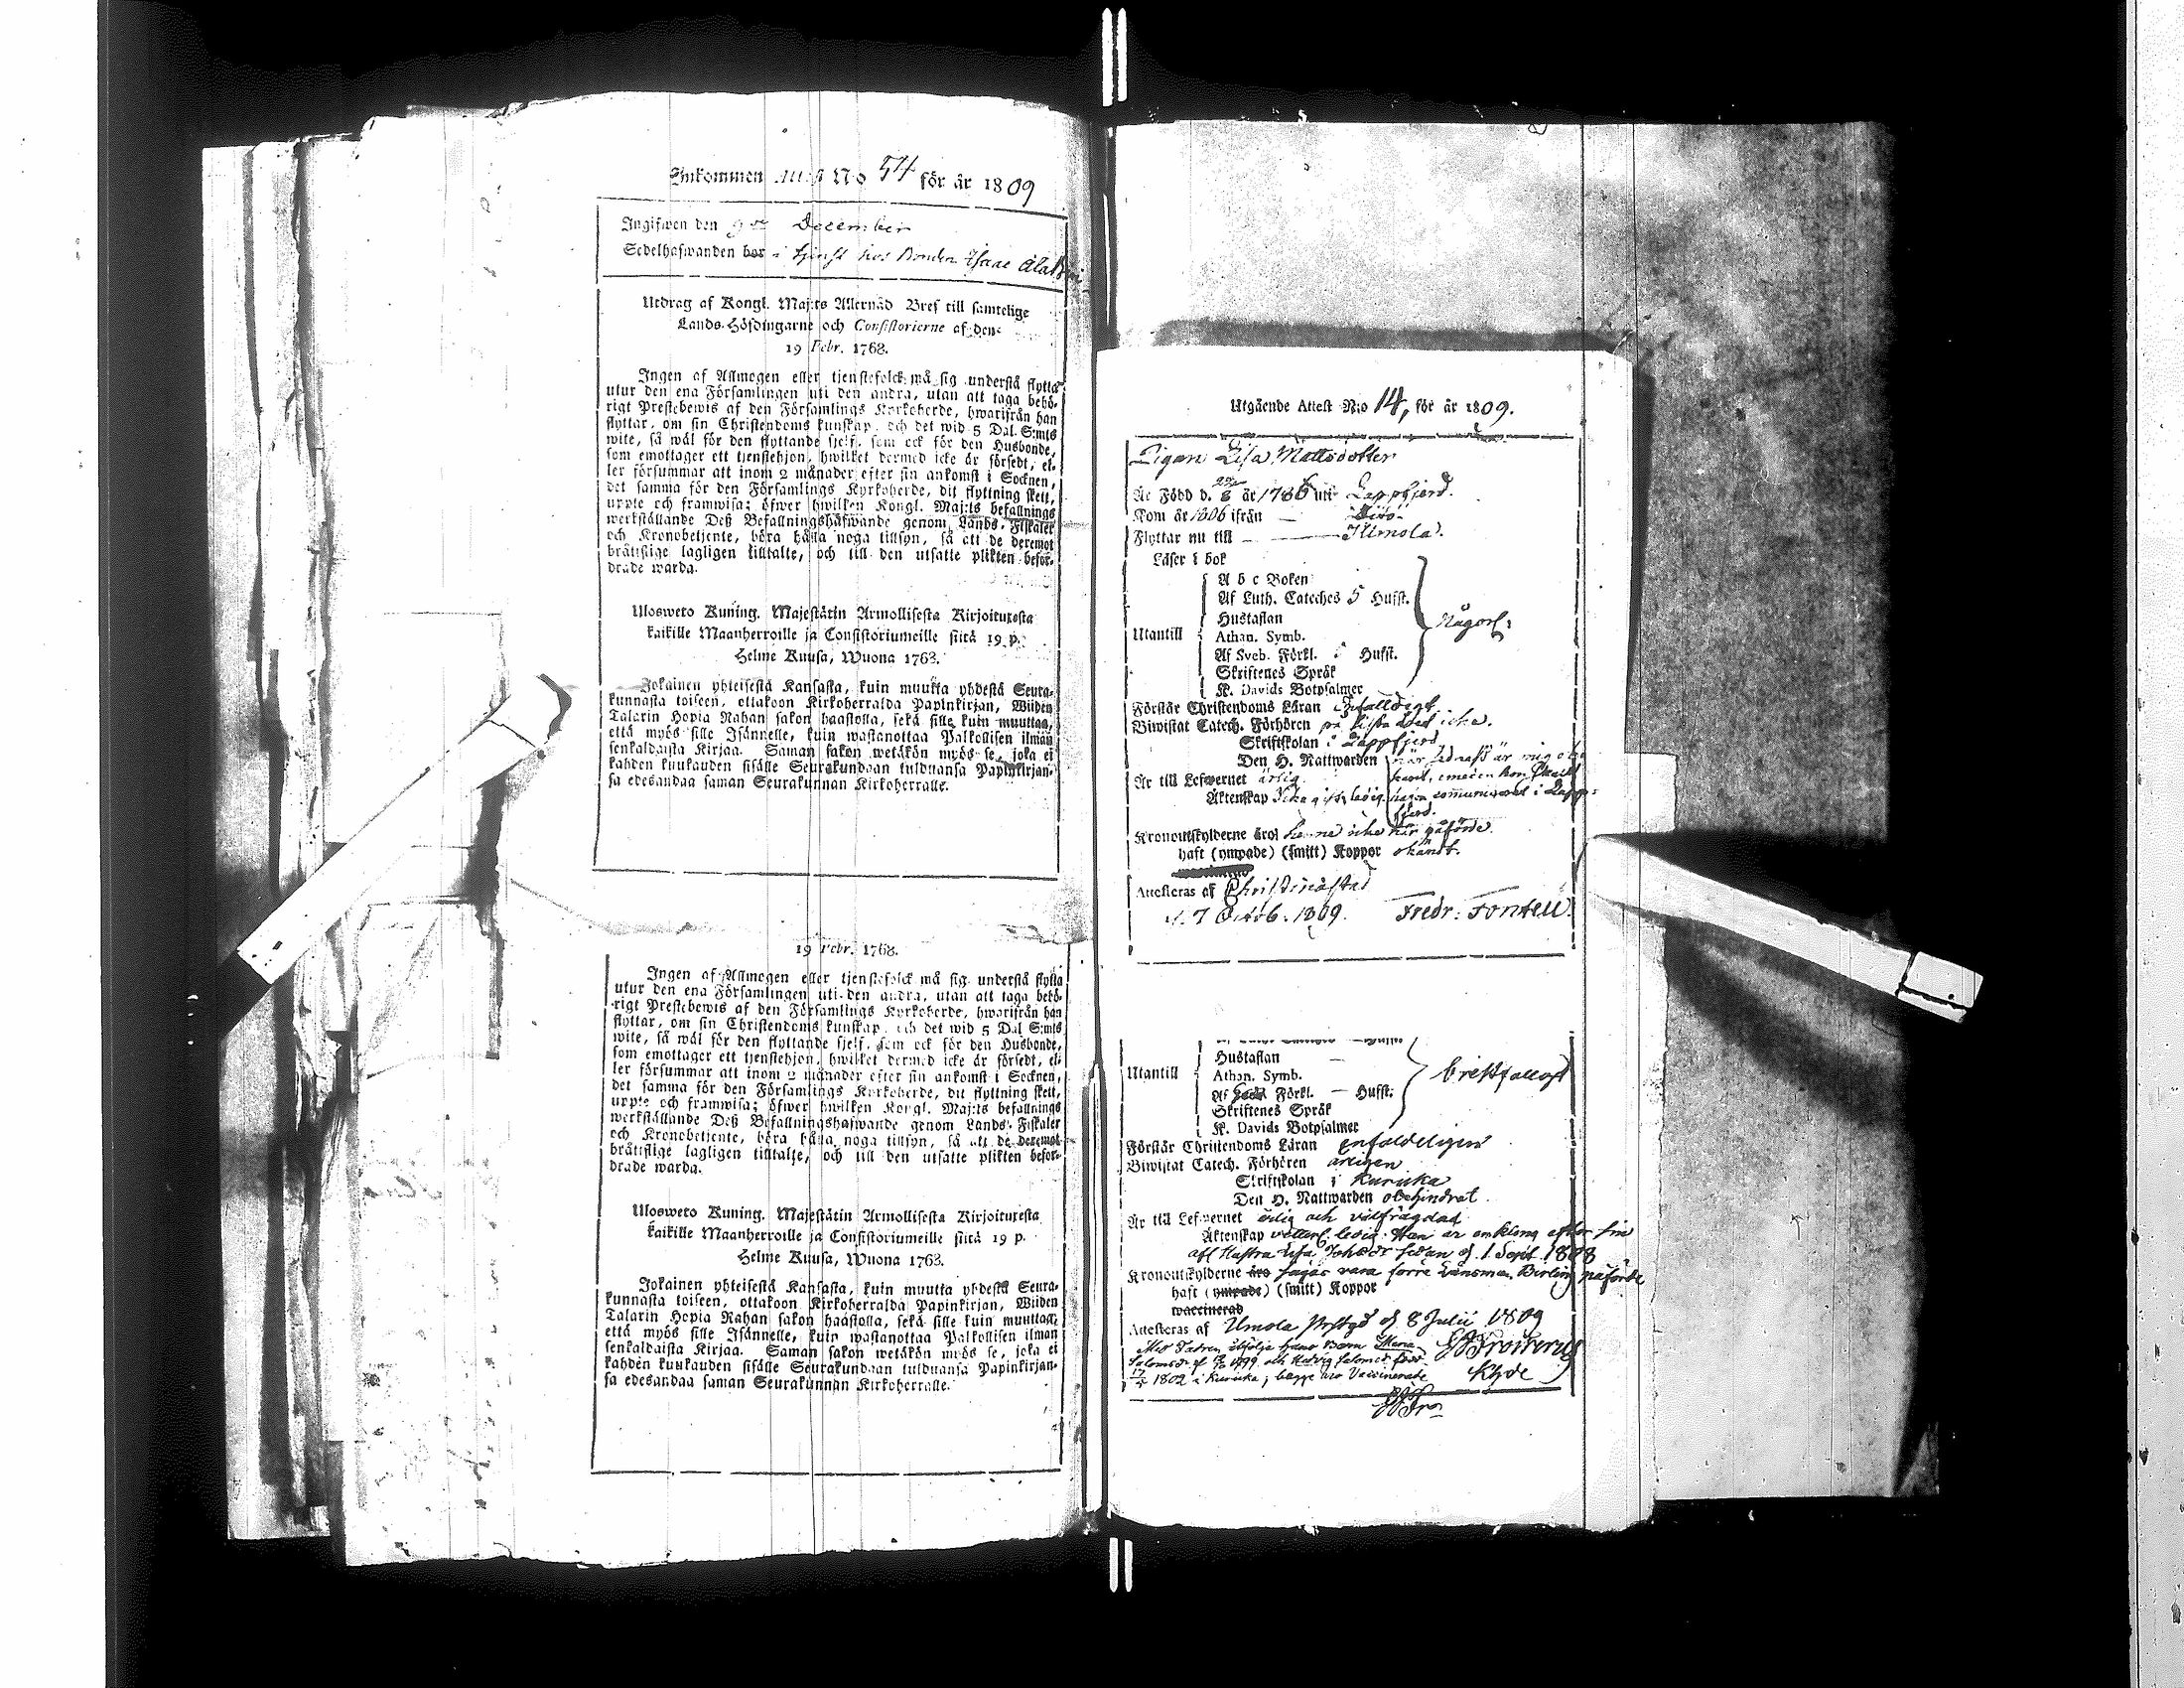 Inkommen Attest No 54 för år 1809
Ingifwen den 9de December
Sedelhafwanden bor i tjenst hos Bonden Isaac
Utdrag af Kongl. Maj:ts Allernåd Bref till samtelige
Lands-Höfdingarne och Consistorierne af den
19 Febr. 1768.
Ingen af Allmogen eller tjenstefolck må sig understå flytta
utur den ena Församlingen uti den andra, utan att taga behö-
rigt Prestebewis af den Församlings Kyrkoherde, hwarifrån han
flyttar, om sin Christendoms kunskap, och det wid 5 Dal. S:mts
wite, så wäl för den flyttande sjelf, som ock för den Husbonde,
som emottager ett tjenstehjon, hwilket dermed icke är försedt, el-
ler försummar att inom 2 månader efter sin ankomst i Socknen,
det samma för den Församlings Kyrkoherde, dit flyttning skett,
uppte och framwisa; öfwer hwilken Kongl. Maj:ts befallnings
werkställande Deß Befallningshafwande genom Lands-Fiskaler
och Kronobetjente, böra hålla noga tillsyn, så att de deremot
bråttslige lagligen tilltalte, och till den utsatte plikten beför-
drade warda.
Ulosweto Kuning. Majestätin Armollisesta Kirjoituxesta
kaikille Maanherroille ja Consistoriumeille siitä 19 p.
Helme Kuusa, Wuona 1768.
Jokainen yhteisestä Kansasta, kuin muutta yhdestä Seura-
kunnasta toiseen, ottakoon Kirkoherralda Papinkirjan, Wiiden
Talarin Hopia Rahan sakon haastolla, sekä sille kuin muuttaa,
että myös sille Isännelle, kuin wastanottaa Palkollisen ilman
senkaldaista Kirjaa. Saman sakon wetäkön myös se, joka ei
kahden kuukauden sisälle Seurakundaan tulduansa Papinkirjan-
sa edesandaa saman Seurakunnan Kirkoherralle.
19 Febr. 1768.
Ingen af Allmogen eller tjenstefolck må sig understå flytta
utur den ena Församlingen uti den andra, utan att taga behö-
rigt Prestebewis af den Församlings Kyrkoherde, hwarifrån han
flyttar, om sin Christendoms kunskap, och det wid 5 Dal S:mts
wite, så wäl för den flyttande sjelf, som ock för den Husbonde,
som emottager ett tjenstehjon, hwilket dermed icke är försedt, el-
ler försummar att inom 2 månader efter sin ankomst i Socknen,
det samma för den Församlings Kyrkoherde, dit flyttning skett,
uppte och framwisa; öfwer hwilken Kongl. Maj:ts befallnings
werkställande Deß Befallningshafwande genom Lands-Fiskaler
och Kronobetjente, böra hålla noga tillsyn, så att de deremot
bråttslige lagligen tilltalte, och till den utsatte plikten beför-
drade warda.
Ulosweto Kuning. Majestätin Armollisesta Kirjoituxesta
kaikille Maanherroille ja Consistoriumeille siitä 19 p.
Helme Kuusa, Wuona 1768.
Jokainen yhteisestä Kansasta, kuin muutta yhdestä Seura-
kunnasta toiseen, ottakoon Kirkoherralda Papinkirjan, Wiiden
Talarin Hopia Rahan sakon haastolla, sekä sille kuin muuttaa,
että myös sille Isännelle, kuin wastanottaa Palkollisen ilman
senkaldaista Kirjaa. Saman sakon wetäkön myös se, joka ei
kahden kuukauden sisälle Seurakundaan tulduansa Papinkirjan-
sa edesandaa saman Seurakunnan Kirkoherralle.
Utgående Attest N:o 14, för år 1809.
Pigan Lisa Mattsdotter
Är Född d. år 1786 uti Lappfjerd.
Kom år 1806 ifrån —
Flyttar nu till — Ilmola.
Läser i bok
A b c Boken
Af Luth. Cateches 5 Hufst.
Hustaflan
Utantill Athan. Symb. Någorl:
Af Sveb. Förkl. Hufst.
Skriftenes Språk
K. Davids Botpsalmer
Förstår Christendoms Läran Enfalldigt
Biwistat Catech. Förhören på sista året icke.
Skriftskolan i Lappfjerd
Den H. Nattwarden
Är till Lefwernet ärlig
Äktenskap Icke gift, ledig. communicerat i Lapp-
fjerd.
Kronoutskylderne äro henne icke här påförde.
haft (ympade) (smitt) Koppor okändt.
Attesteras af Christinæstad
d. 7 Octob. 1809. Fredr: Fontell
Hustaflan —
Utantill Athan. Symb. bristfälligt
Af Förkl. — Hufst.
Skriftenes Språk
K. Davids Botpsalmer
Förstår Christendoms Läran enfaldeligen
Biwistat Catech. Förhören årligen
Skriftskolan i Kuricka
Den H. Nattwarden obehindrat.
Är till Lefwernet ärlig och välfrägdad
Äktenskap ledig. Han är enkling efter sin
afl Hustru Lisa Joh:dr sedan d. 1 Sept. 1808
Kronoutskylderne äro sägas vara förre Länsman Berling påförde
haft (ympade) (smitt) Koppor
waccinerad
Attesteras af Ilmola d. 8 Julii 1809
Med Fadren åtfölja hans Barn Maria
Salomsdr 1799 och Hedvig Salomdr född
1802 i Kuricka; bägge äro Vaccinerade